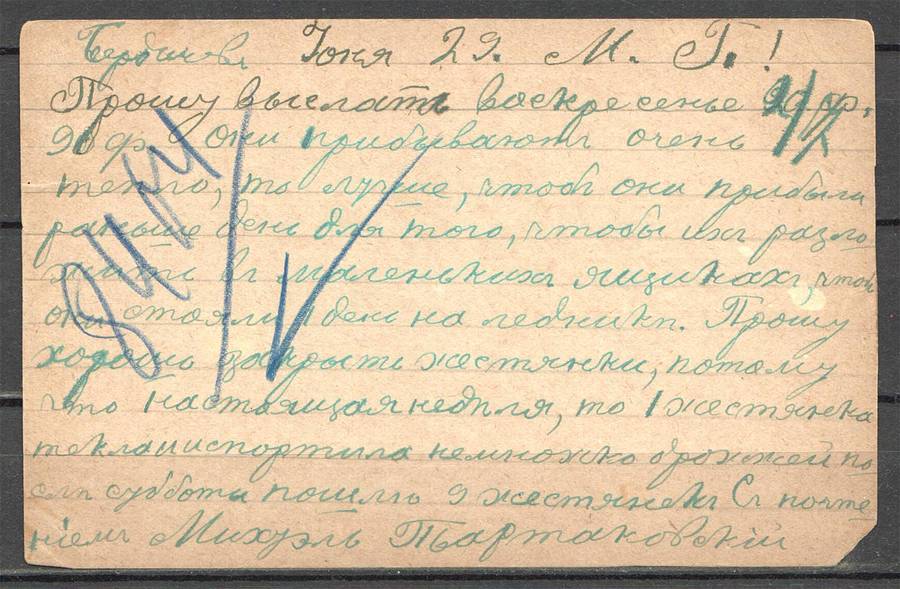 Бердичевъ Юня 29. М. Г.!
Прошу выслать васкресенье 90 ф.
90 ф они прибывають очень
тепло, то лучше, чтобъ они прибыли
раньше день для того, чтобы ихъ разло
жить въ маленькихъ ящикахъ, чтоб
они стояли 1 день на ледники. Прошу
хорошо закрыть жестянки, потому
что настаящая неделя, то 1 жестянка
текла и испортила немножко дрожжей по
слѣ субботы пошлю 9 жестянекъ Съ почте
ніемъ Михуэль Тартаковскій